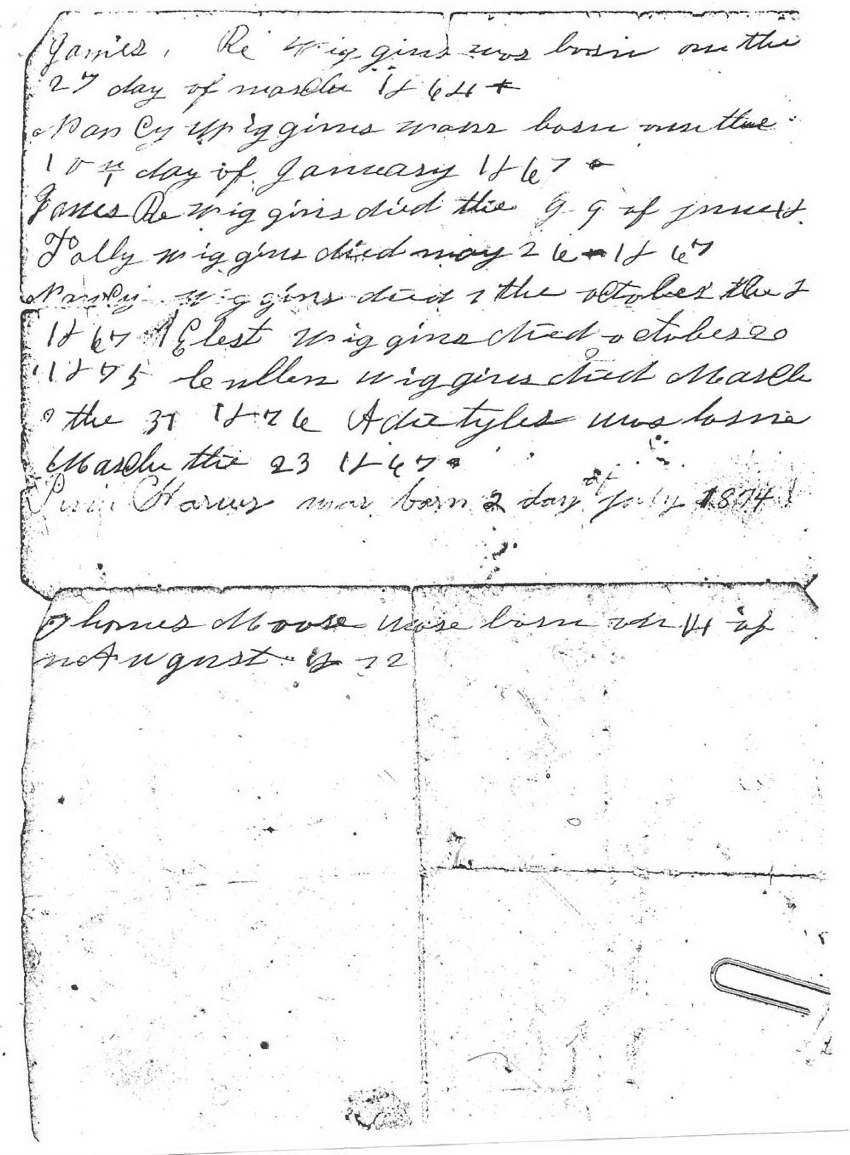 James. Re Wiggins was born on the
27 day of march 1864
Nancy Wiggins was born on the
10 day of January 1867
James Re Wiggins died the 9 of june
Tolly Wiggins died may 26 1867
Nancy Wiggins died the october the
1867 Elest Wiggins died october 20
1875 Cullen Wiggins died March
the 31 1876 Adie tyler was borne
March the 23 1867
was born 2 day of july 1874
Thomes Moore was born on 14 of
August 1872